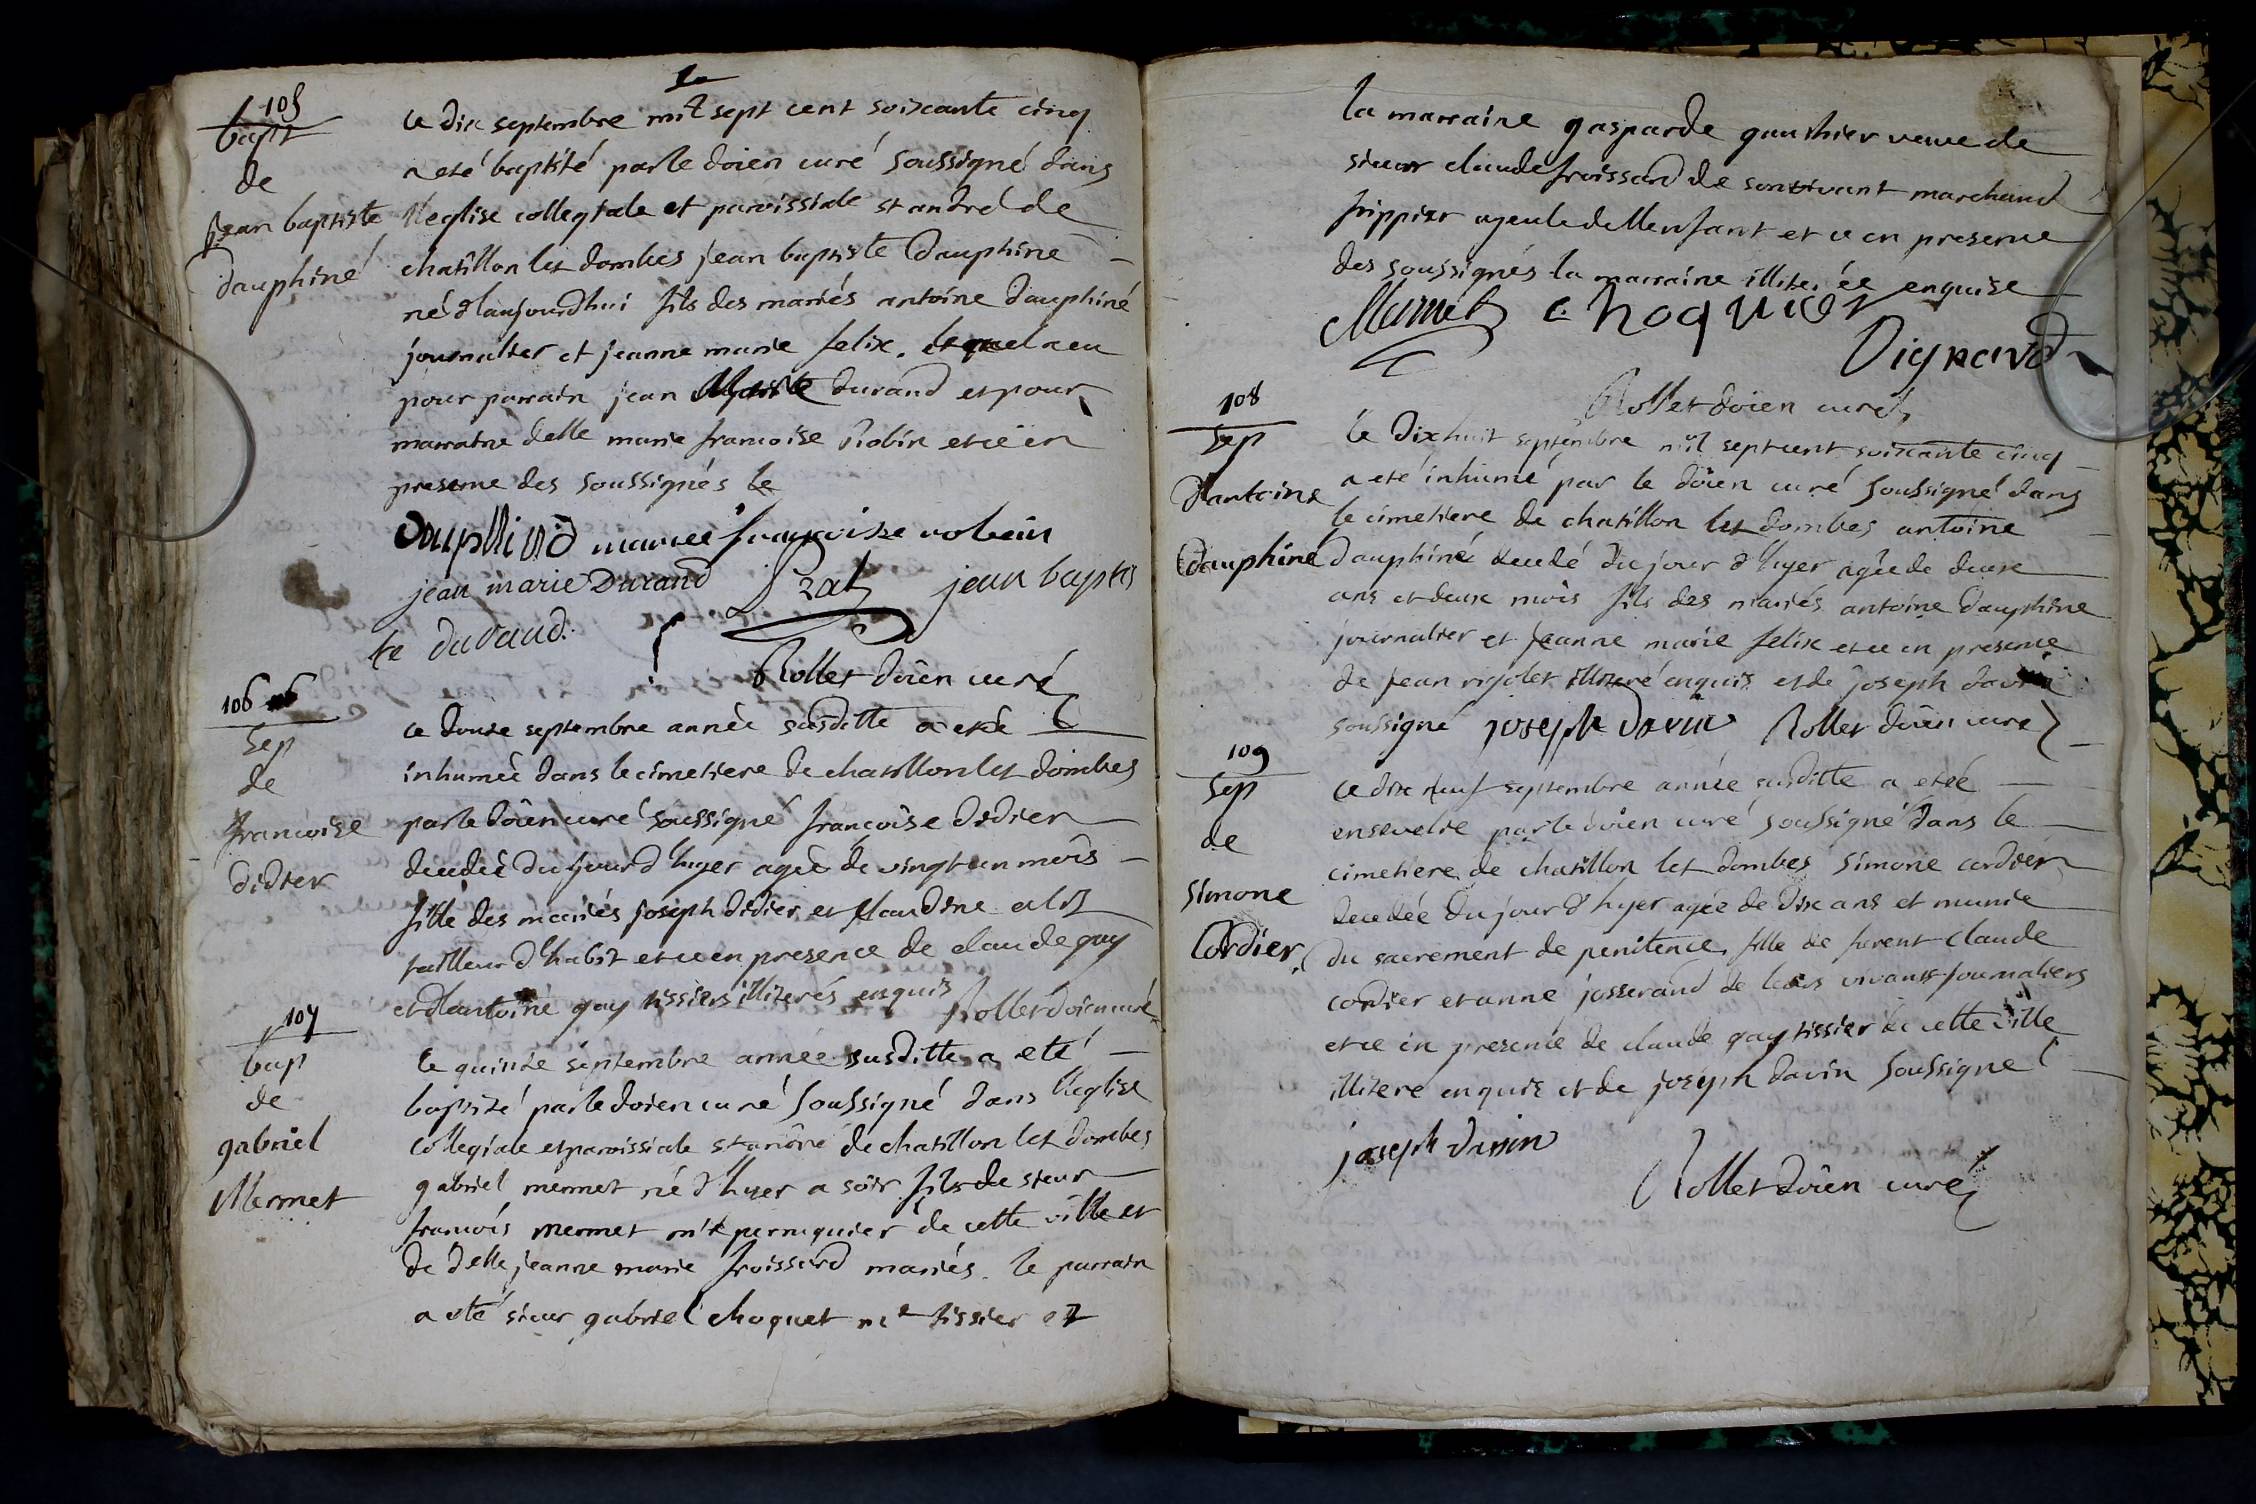 105
bapt
de
jean baptiste
dauphiné
ce dix septembre mil sept cent soixante cinq
a eté baptisé par le doien curé soussigné dans
l'eglise collegiale et paroissiale st andré de
chatillon les dombes jean baptiste dauphiné
né d'aujourd'hui fils des mariés antoine dauphiné
journalier et jeanne marie felix. lequel a eu
pour parrain jean durand et pour
marraine delle marie francoise Robin et ce en
presence des soussignés le
Dauphinè mariee françoise robein
jean marie Durand Prat jean baptis
te durand.
Rollet doien curé
106
Sep
de
francoise
didier
ce douze septembre année susditte a eteé
inhumeé dans le cimetiere de chatillon les dombes
par le doien curé soussigné francoise didier
decedeé du jour d'hyer ageé de vingt un mois
fille des mariés joseph didier et claudine
tailleur d'habit et ce en presence de claude guy
et d'antoine guy tissiers illiterés enquis Rollet doien curé
107
bap
de
gabriel
Mermet
le quinze septembre année susditte a eté
baptisé par le doien curé soussigné dans l'eglise
collegiale et paroissiale st andré de chatillon les dombes
gabriel mermet né d'hyer a soir fils de sieur
francois mermet mtre perruquier de cette ville et
de delle jeanne marie froissard mariés. le parrain
a eté sieur gabriel choquet me tissier et
la marraine gasparde gauthier veuve de
sieur claude froissard de son vivant marchand
frippier ayeule de l'enfant et ce en presence
des soussignés la marraine illiterée enquise
Mermet choquet
Vignard
Rollet doien curé
108
Sep
d'antoine
dauphiné
le dix huit septembre mil sept cent soixante cinq
a eté inhumé par le doien curé soussigné dans
le cimetiere de chatillon les dombes antoine
dauphiné decedé du jour d'hyer agée de deux
ans et deux mois fils des mariés antoine dauphiné
journalier et jeanne marie felix et ce en presence
de jean rigolet illiteré enquis et de joseph davin
soussigné joseph Davin Rollet doien curé
109
Sep
de
simone
Cordier
ce dix neuf septembre année susditte a eteé
ensevelie par le doien curé soussigné dans le
cimetiere de chatillon les dombes simone cordier
decedée du jour d'hyer agée de dix ans et munie
du sacrement de penitence, fille de furent claude
cordier et anne josserand de leurs vivants journaliers
et ce en presence de claude guy tissier de cette ville
illiteré enquis et de joseph davin soussigné
joseph davin
Rollet doien curé